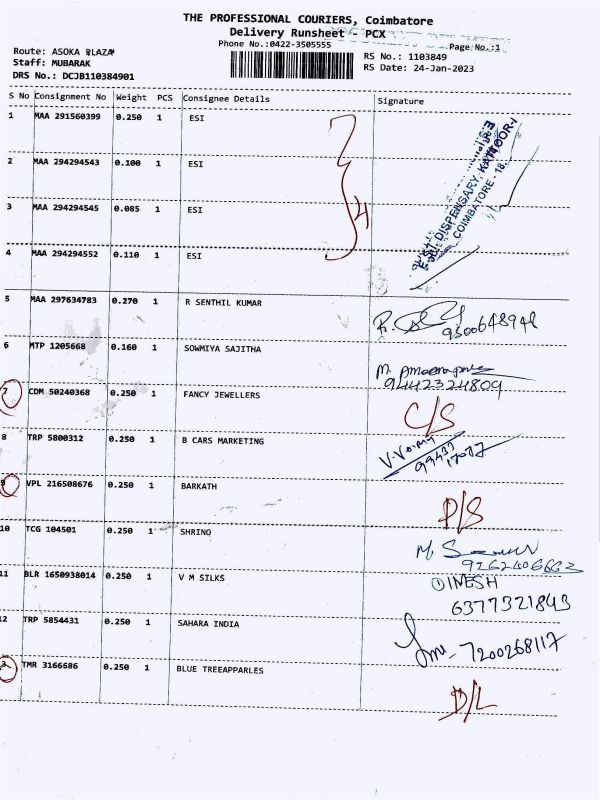 THE PROFESSIONAL COURIERS, Coimbatore
Delivery Runsheet - PCX
Phone No.:0422-3505555
Page No.:1
Route: ASOKA PLAZA
Staff: MUBARAK
DRS No.: DCJB110384901
RS No.: 1103849
RS Date: 24-Jan-2023
S No Consignment No Weight PCS Consignee Details Signature
1 MAA 291560399 0.250 1 ESI
2 MAA 294294543 0.100 1 ESI
3 MAA 294294545 0.085 1 ESI
4
4 MAA 294294552 0.110 1 ESI
DISPENSARY, KATTOOR-1
COIMBATORE - 18.
5 MAA 297634783 0.270 1 R SENTHIL KUMAR
9500648948
6 MTP 1205668 0.160 1 SOWMIYA SAJITHA
9442324809
7 CDM 50240368 0.250 1 FANCY JEWELLERS
C/S
8 TRP 5800312 0.250 1 B CARS MARKETING
9 VPL 216508676 0.250 1 BARKATH
D/S
10 TCG 104501 0.250 1 SHRINO
11 BLR 1650938014 0.250 1 V M SILKS
6377321843
12 TRP 5854431 0.250 1 SAHARA INDIA
7200268117
TMR 3166686 0.250 1 BLUE TREEAPPARLES
D/L